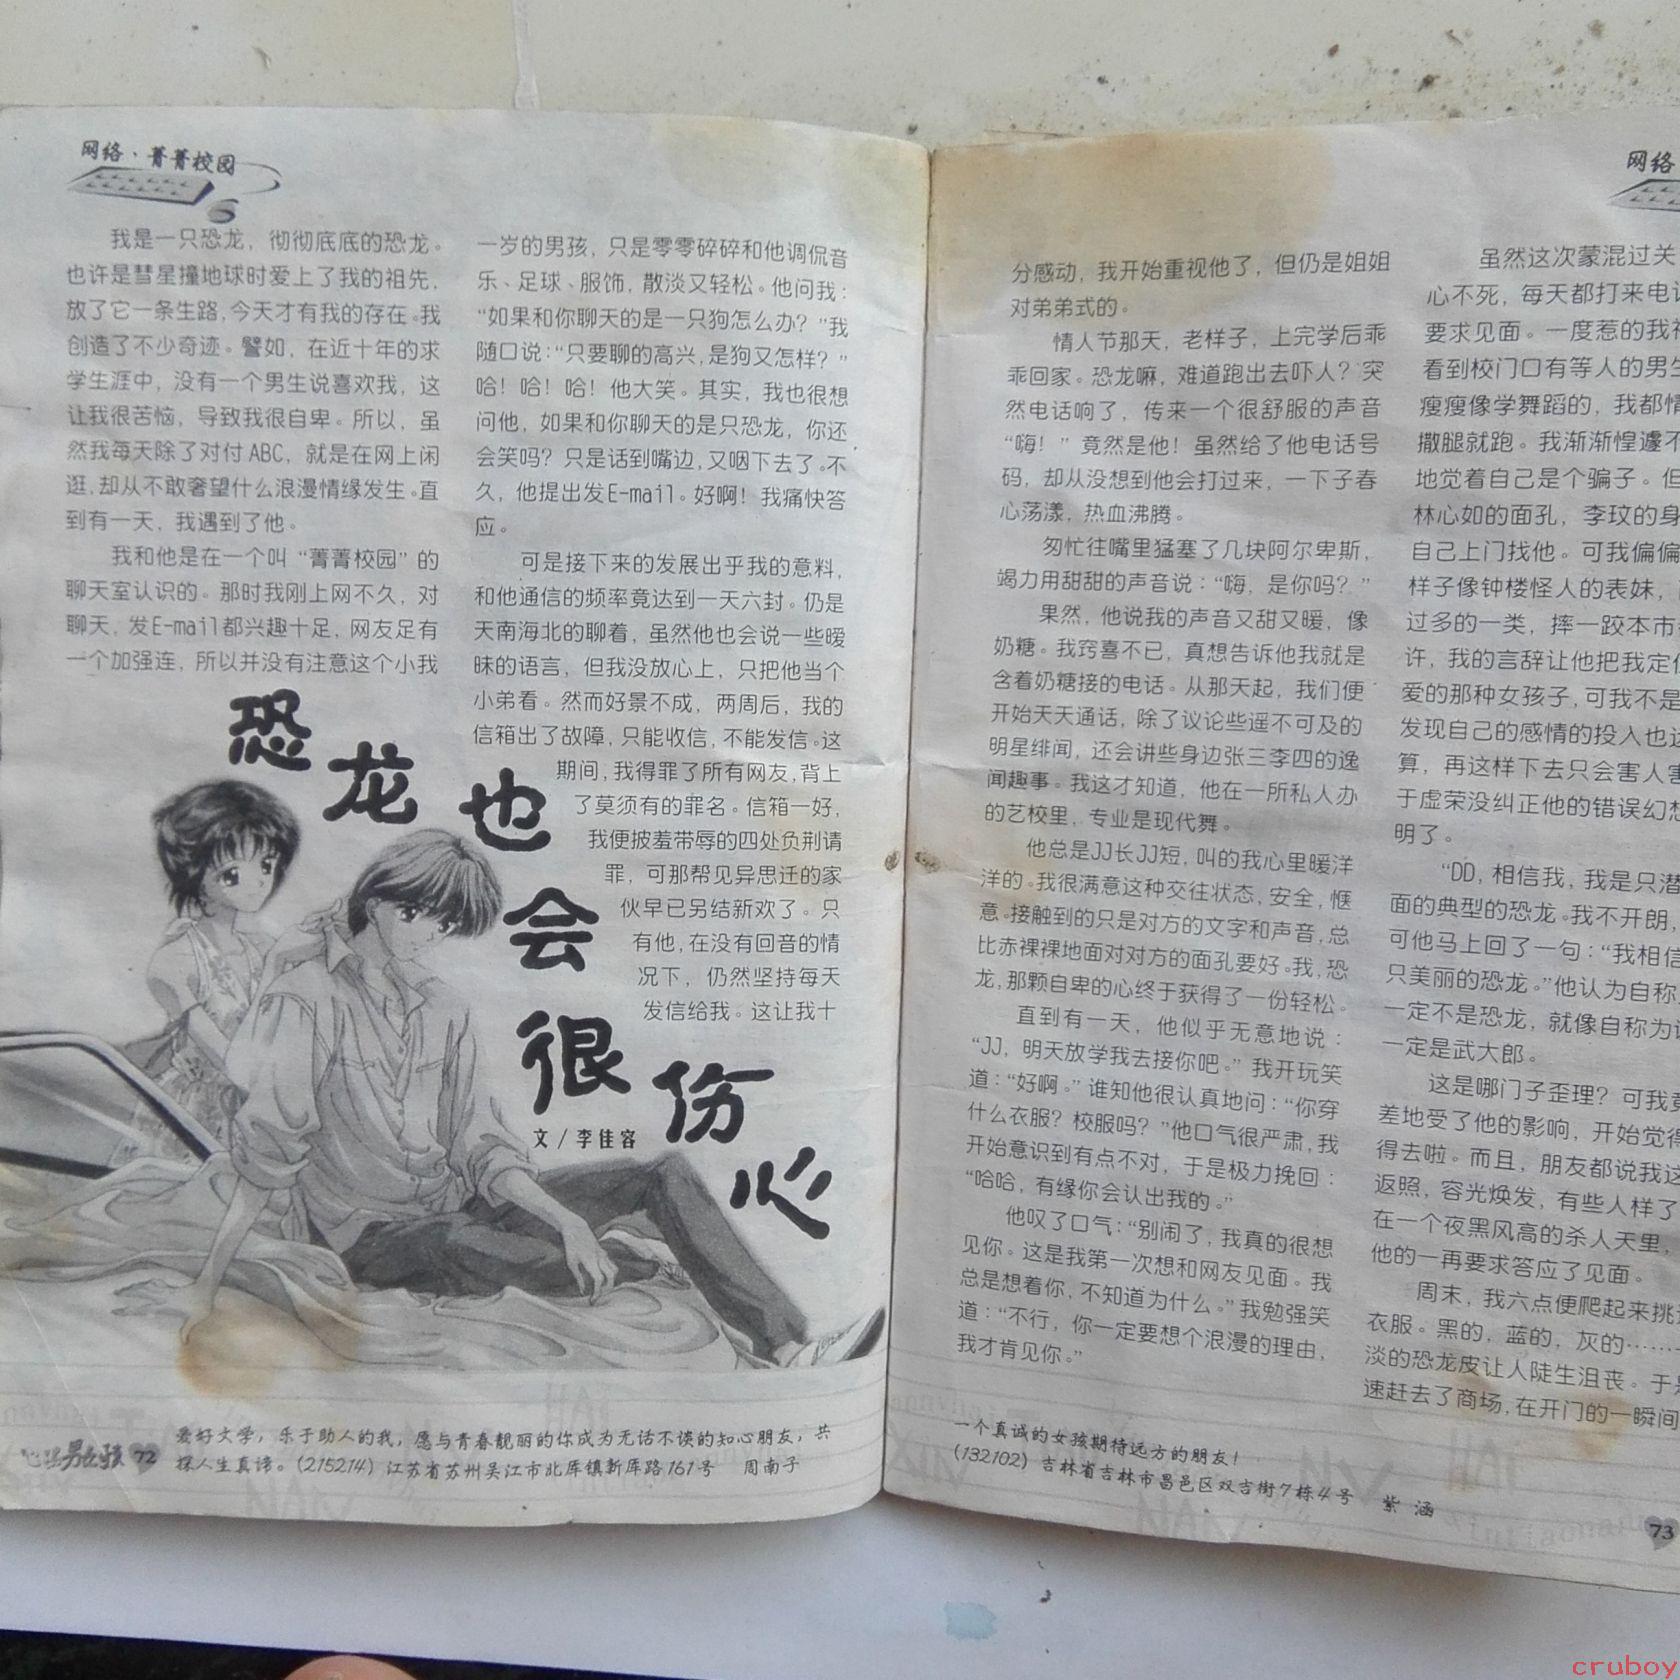 网络·菁菁校园
我是一只恐龙，彻彻底底的恐龙。
也许是彗星撞地球时爱上了我的祖先，
放了它一条生路，今天才有我的存在。我
创造了不少奇迹。譬如，在近十年的求
学生涯中，没有一个男生说喜欢我，这
让我很苦恼，导致我很自卑。所以，虽
然我每天除了对付ABC，就是在网上闲
逛，却从不敢奢望什么浪漫情缘发生。直
到有一天，我遇到了他。
我和他是在一个叫“菁菁校园”的
聊天室认识的。那时我刚上网不久，对
聊天，发E-mail都兴趣十足，网友足有
一个加强连，所以并没有注意这个小我
一岁的男孩，只是零零碎碎和他调侃音
乐、足球、服饰，散淡又轻松。他问我：
“如果和你聊天的是一只狗怎么办？”我
随口说：“只要聊的高兴，是狗又怎样？”
哈！哈！哈！他大笑。其实，我也很想
问他，如果和你聊天的是只恐龙，你还
会笑吗？只是话到嘴边，又咽下去了。不
久，他提出发E-mail。好啊！我痛快答
应。
可是接下来的发展出乎我的意料，
和他通信的频率竟达到一天六封。仍是
天南海北的聊着，虽然他也会说一些暧
昧的语言，但我没放心上，只把他当个
小弟看。然而好景不成，两周后，我的
信箱出了故障，只能收信，不能发信。这
期间，我得罪了所有网友，背上
了莫须有的罪名。信箱一好，
我便披羞带辱的四处负荆请
罪，可那帮见异思迁的家
伙早已另结新欢了。只
有他，在没有回音的情
况下，仍然坚持每天
发信给我。这让我十
恐龙也会很伤心
文/李佳容
心理男女孩 72
爱好文学，乐于助人的我，愿与青春靓丽的你成为无话不谈的知心朋友，共
探人生真谛。（215214）江苏省苏州吴江市北厍镇新厍路161号 周南子
网络
分感动，我开始重视他了，但仍是姐姐
对弟弟式的。
情人节那天，老样子，上完学后乖
乖回家。恐龙嘛，难道跑出去吓人？突
然电话响了，传来一个很舒服的声音
“嗨！”竟然是他！虽然给了他电话号
码，却从没想到他会打过来，一下子春
心荡漾，热血沸腾。
匆忙往嘴里猛塞了几块阿尔卑斯，
竭力用甜甜的声音说：“嗨，是你吗？”
果然，他说我的声音又甜又暖，像
奶糖。我窃喜不已，真想告诉他我就是
含着奶糖接的电话。从那天起，我们便
开始天天通话，除了议论些遥不可及的
明星绯闻，还会讲些身边张三李四的逸
闻趣事。我这才知道，他在一所私人办
的艺校里，专业是现代舞。
他总是JJ长JJ短，叫的我心里暖洋
洋的。我很满意这种交往状态，安全，惬
意。接触到的只是对方的文字和声音，总
比赤裸裸地面对对方的面孔要好。我，恐
龙，那颗自卑的心终于获得了一份轻松。
直到有一天，他似乎无意地说：
“JJ，明天放学我去接你吧。”我开玩笑
道：“好啊。”谁知他很认真地问：“你穿
什么衣服？校服吗？”他口气很严肃，我
开始意识到有点不对，于是极力挽回：
“哈哈，有缘你会认出我的。”
他叹了口气：“别闹了，我真的很想
见你。这是我第一次想和网友见面。我
总是想着你，不知道为什么。”我勉强笑
道：“不行，你一定要想个浪漫的理由，
我才肯见你。”
虽然这次蒙混过关
心不死，每天都打来电话
要求见面。一度惹的我
看到校门口有等人的男生
瘦瘦像学舞蹈的，我都情
撒腿就跑。我渐渐惶遽不
地觉着自己是个骗子。但
林心如的面孔，李玟的身
自己上门找他。可我偏偏
样子像钟楼怪人的表妹，
过多的一类，摔一跤本市
许，我的言辞让他把我定位
爱的那种女孩子，可我不是
发现自己的感情的投入也
算，再这样下去只会害人害
于虚荣没纠正他的错误幻想
明了。
“DD，相信我，我是只潜
面的典型的恐龙。我不开朗，
可他马上回了一句：“我相信
只美丽的恐龙。”他认为自称
一定不是恐龙，就像自称为
一定是武大郎。
这是哪门子歪理？可我竟
差地受了他的影响，开始觉得
得去啦。而且，朋友都说我这
返照，容光焕发，有些人样了
在一个夜黑风高的杀人天里，
他的一再要求答应了见面。
周末，我六点便爬起来挑
衣服。黑的，蓝的，灰的……
淡的恐龙皮让人陡生沮丧。于是
速赶去了商场，在开门的一瞬间
一个真诚的女孩期待远方的朋友！
（132102）吉林省吉林市昌邑区双吉街7栋4号 紫涵
73
cruboy